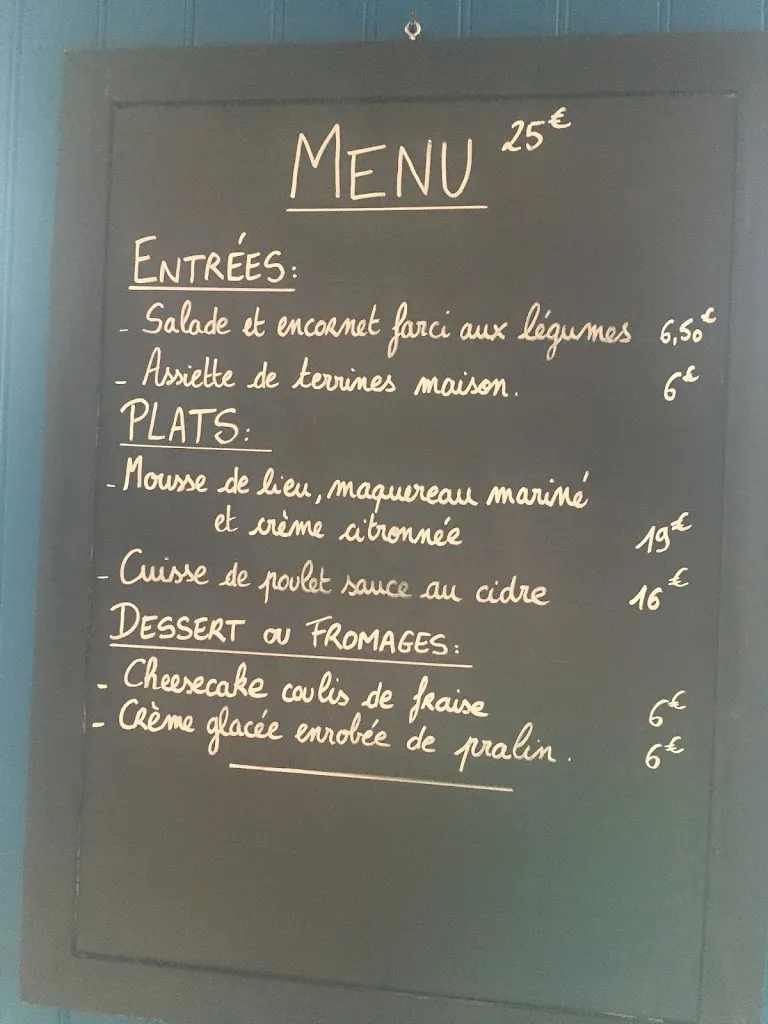 MENU 25€
ENTRÉES:
- Salade et encornet farci aux légumes 6,50€
- Assiette de terrines maison. 6€
PLATS:
- Mousse de lieu, maquereau mariné
et crème citronnée 19€
- Cuisse de poulet sauce au cidre 16€
DESSERT OU FROMAGES:
- Cheesecake coulis de fraise 6€
- Crème glacée enrobée de pralin. 6€